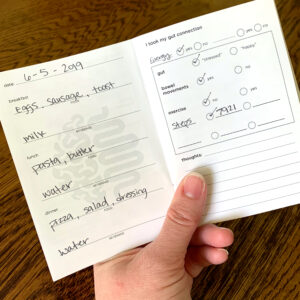 date 6-5-2019
breakfast
Eggs, sausage, toast
milk
beverage
lunch
pasta, butter
food
water
beverage
dinner
pizza, salad, dressing
food
water
beverage
I took my gut connection
yes no
Energy yes no
gut
"stressed" "happy"
bowel movements
yes
no
exercise
Steps 7921
thoughts: